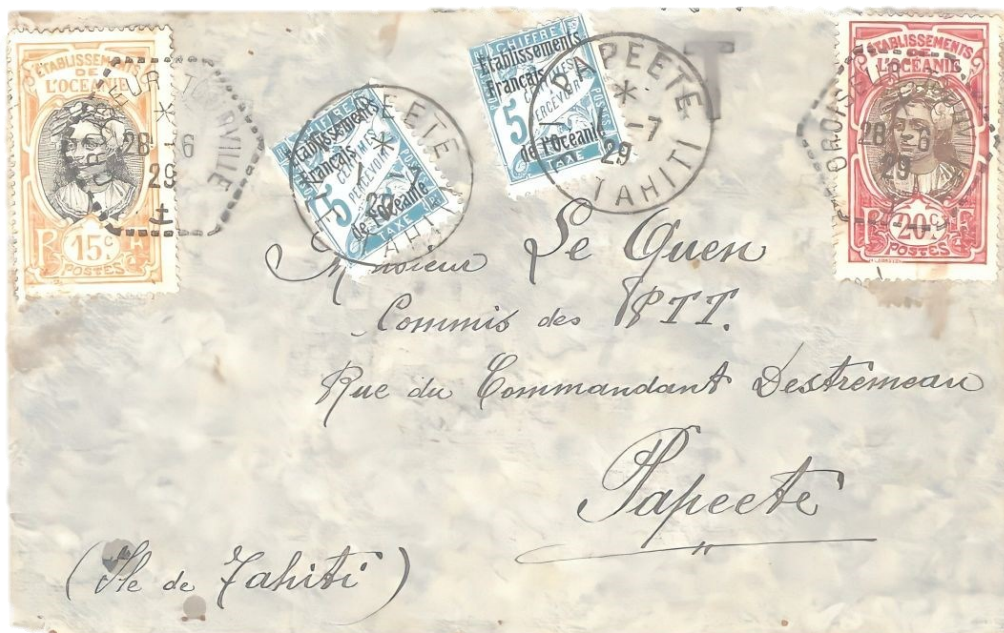 ÉTABLISSEMENTS
DE
L'OCEANIE
15c
POSTES
28-6
29
CHIFFRE
Établissements
Français
de l'Océanie
5
CENTIMES
À PERCEVOIR
TAXE
PAPEETE
TAHITI
CHIFFRE
Établissements
Français
de l'Océanie
5
CENTIMES
PERCEVOIR
TAXE
PAPEETE
-7
29
TAHITI
T
ÉTABLISSEMENTS
DE L'OCEANIE
28-6
29
20c
POSTES
Monsieur Le Quen
Commis des PTT.
Rue du Commandant Destrémeau
Papeete
(Ile de Tahiti)